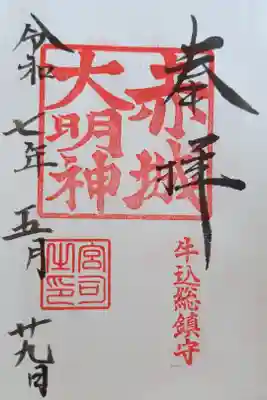 奉拝
赤城
大明神
牛込総鎮守
宮司
之印
令和七年五月廿九日